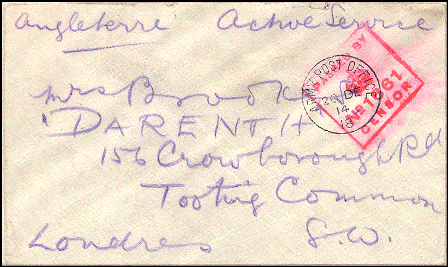 Angleterre Active Service
Mrs Brook
"DARENTH
156 Crowborough Rd
Tooting Common
Londres S.W.
ARMY POST OFFICE
20 DE
14
BY
No 1681
CENSOR